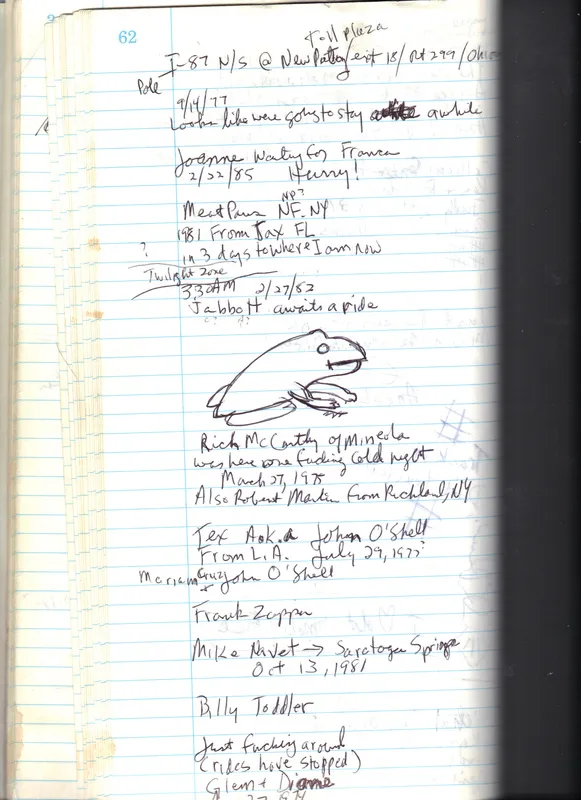 62
Toll plaza
I-87 N/S @ New Paltz/exit 18/Rt 299/Ohio
Pole
9/14/77
Looks like were going to stay awhile
Joanne Waiting for France
2/22/85 Hurry!
NP?
Meat Paws NF. NY
1981 From Jax FL
?
in 3 days to where I am now
Twilight Zone
3:30AM 2/27/82
Jabbott awaits a ride
Rich McCarthy of Mineola
was here one fucking cold night
March 27, 1975
Also Robert Martin from Richland, NY
Tex A.k.a John O'Shell
From L.A. July 29, 1977
Mariam Cruz + John O'Shell
Frank Zappa
Mike Navet → Saratoga Springs
Oct 13, 1981
Billy Toddler
Just fucking around
(rides have stopped)
Glenn + Dianne